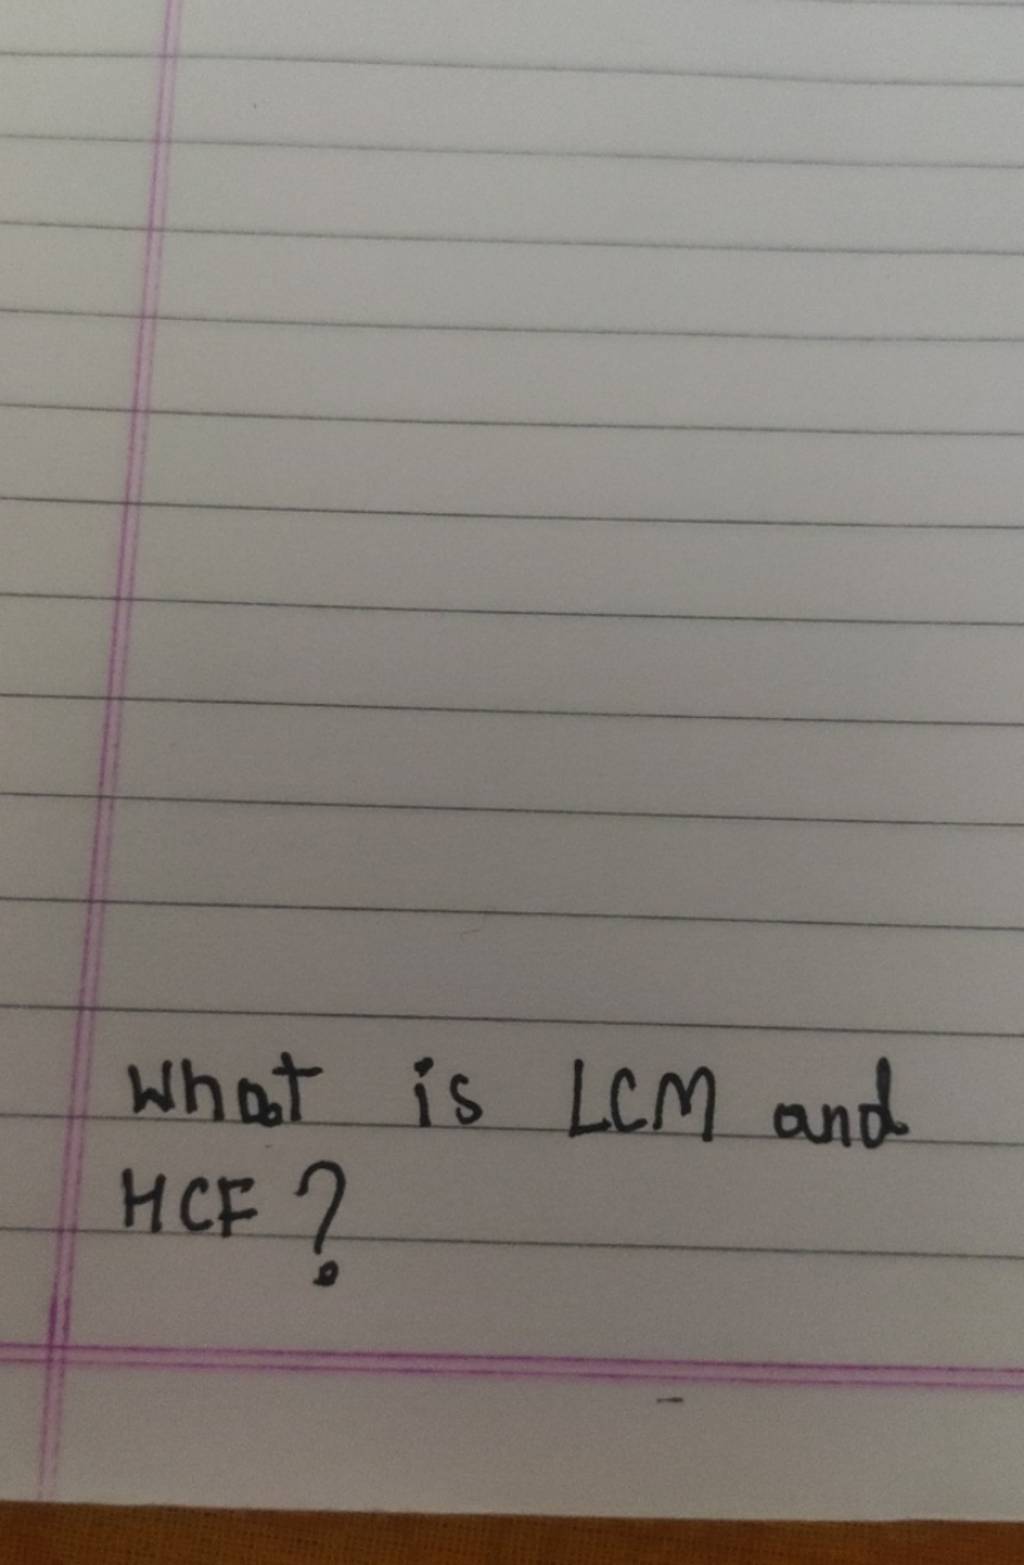 What is LCM and
HCF?